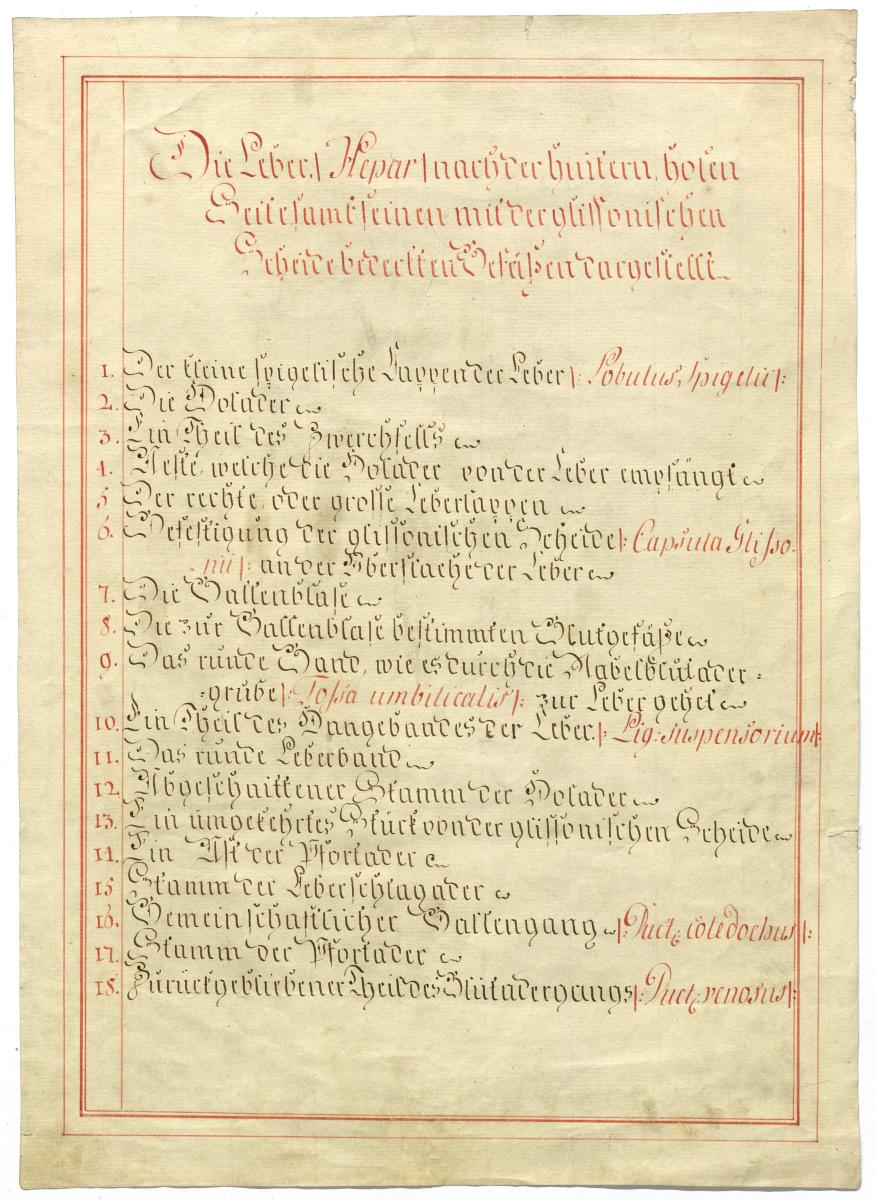 Die Leber |: Hepar :| nach der hintern, holen
Seite samt seinen mit der glissonischen
Scheide bedeckten Gefäßen dargestellt
1. Der kleine spigelische Lappen der Leber |: Lobulus Spigelii :|
2. Die Holader
3. Ein Theil des Zwerchfells
4. Aeste, welche die Holader von der Leber empfängt
5 Der rechte, oder grosse Leberlappen
6. Befestigung der glissonischen Scheide |: Capsula Glisso-
nii :| an der Oberflache der Leber
7. Die Gallenblase
8. Die zur Gallenblase bestimmten Blutgefäße
9. Das runde Band, wie es durch die Nabelblutader-
grube |: Fossa umbilicalis :| zur Leber gehet
10. Ein Theil des Hangebandes der Leber |: Lig: suspensorium :|
11. Das runde Leberband
12. Abgeschnittener Stamm der Holader
13. Ein umgekehrtes Stück von der glissonischen Scheide
14. Ein Ast der Pfortader
15 Stamm der Leberschlagader
16. Gemeinschaftlicher Gallengang |: Duct: coledochus :|
17. Stamm der Pfortader
18. Zurückgebliebener Theil des Blutadergangs |: Duct: venosus :|